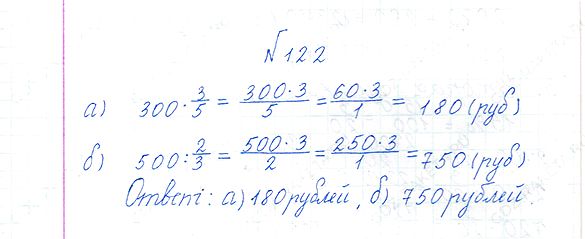 №122
а) 300·3/5 = 300·3/5 = 60·3/1 = 180 (руб)
б) 500:2/3 = 500·3/2 = 250·3/1 = 750 (руб)
Ответ: а) 180 рублей, б) 750 рублей.